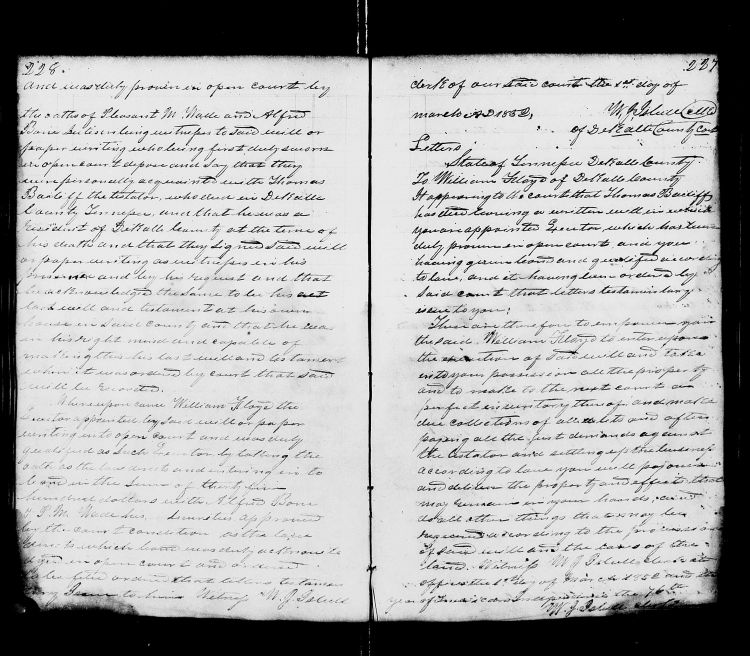 228.
And was duly proven in open court by
the oaths of Pleasant M. Wade and Alfred
Bone subscribing witnesses to said will or
paper writing who being first duly sworn
in open court depose and say that they
were personally acquainted with Thomas
Bailiff the testator, who died in DeKalb
County Tennessee, and that he was a
resident of DeKalb County at the time of
his death and that they signed said will
or paper writing as witnesses in his
presence and by his request and that
he acknowledged the same to be his act
last will and testament at his own
house in said County and that he was
in his right mind and capable of
making this his last will and testament
when it was ordered by court that said
will be recorded.
Whereupon came William Floyd the
Executor appointed by said will or paper
writing into open court and was duly
qualified as such Executor by taking the
oath as the law directs and entering in to
bond in the sum of
hundred dollars with Alfred Bone
& P. M. Wade his securities approved
by the court condition as the law
to which bond was duly acknow
in open court and ordered
to be filed ordered that letters
to him Witness W. J. Isbell
227
clerk of our said court the 1st day of
march AD 1852,
W. J. Isbell Clk
of DeKalb County Court
Letters
State of Tennessee DeKalb County
To William Floyd of DeKalb County
It appearing to the court that Thomas Bailiff
has died leaving a written will in which
you are appointed Executor which has been
duly proven in open court, and you
having given bond and qualified according
to law, and it having been ordered by
said court that letters testamintary
issue to you;
These are therefore to empower you
the said William Floyd to enter upon
the execution of said will and take
into your possession all the property
and to make to the next court a
perfect inventory thereof and make
due collections of all debts and after
paying all the just demands against
the testator and settling up the business
according to law you will pay over
and deliver the property and effects that
may remain in your hands, and
do all other things that may be
required according to the provisions
of said will and the laws of the
land. Witness W. J. Isbell clerk at
office the 1st day of March 1852 and the
year of American Independence the 76th
W. J. Isbell